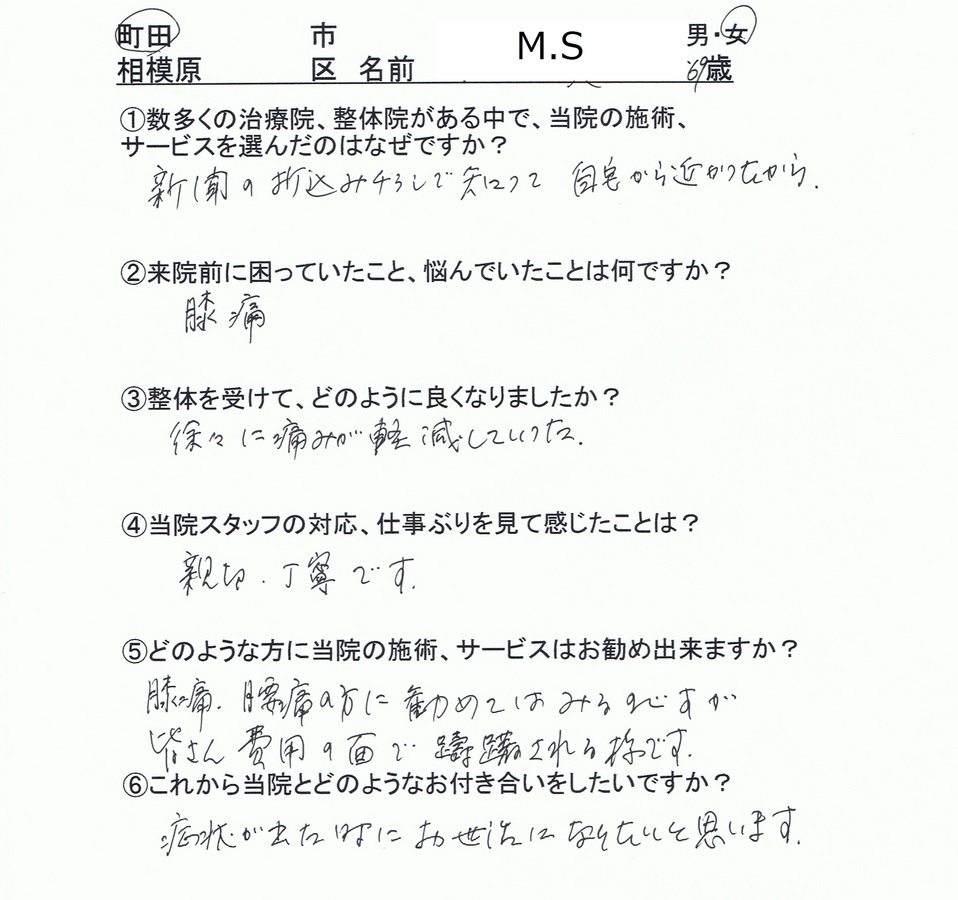 町田 市 M.S 男・女
相模原 区 名前 69歳
①数多くの治療院、整体院がある中で、当院の施術、
サービスを選んだのはなぜですか？
新聞の折込みチラシで知って 自宅から近かったから.
②来院前に困っていたこと、悩んでいたことは何ですか？
膝痛
③整体を受けて、どのように良くなりましたか？
徐々に痛みが軽減していった.
④当院スタッフの対応、仕事ぶりを見て感じたことは？
親切.丁寧です.
⑤どのような方に当院の施術、サービスはお勧め出来ますか？
膝痛.腰痛の方に勧めてはみるのですが
皆さん費用の面で躊躇される様です.
⑥これから当院とどのようなお付き合いをしたいですか？
症状が出た時にお世話になりたいと思います.